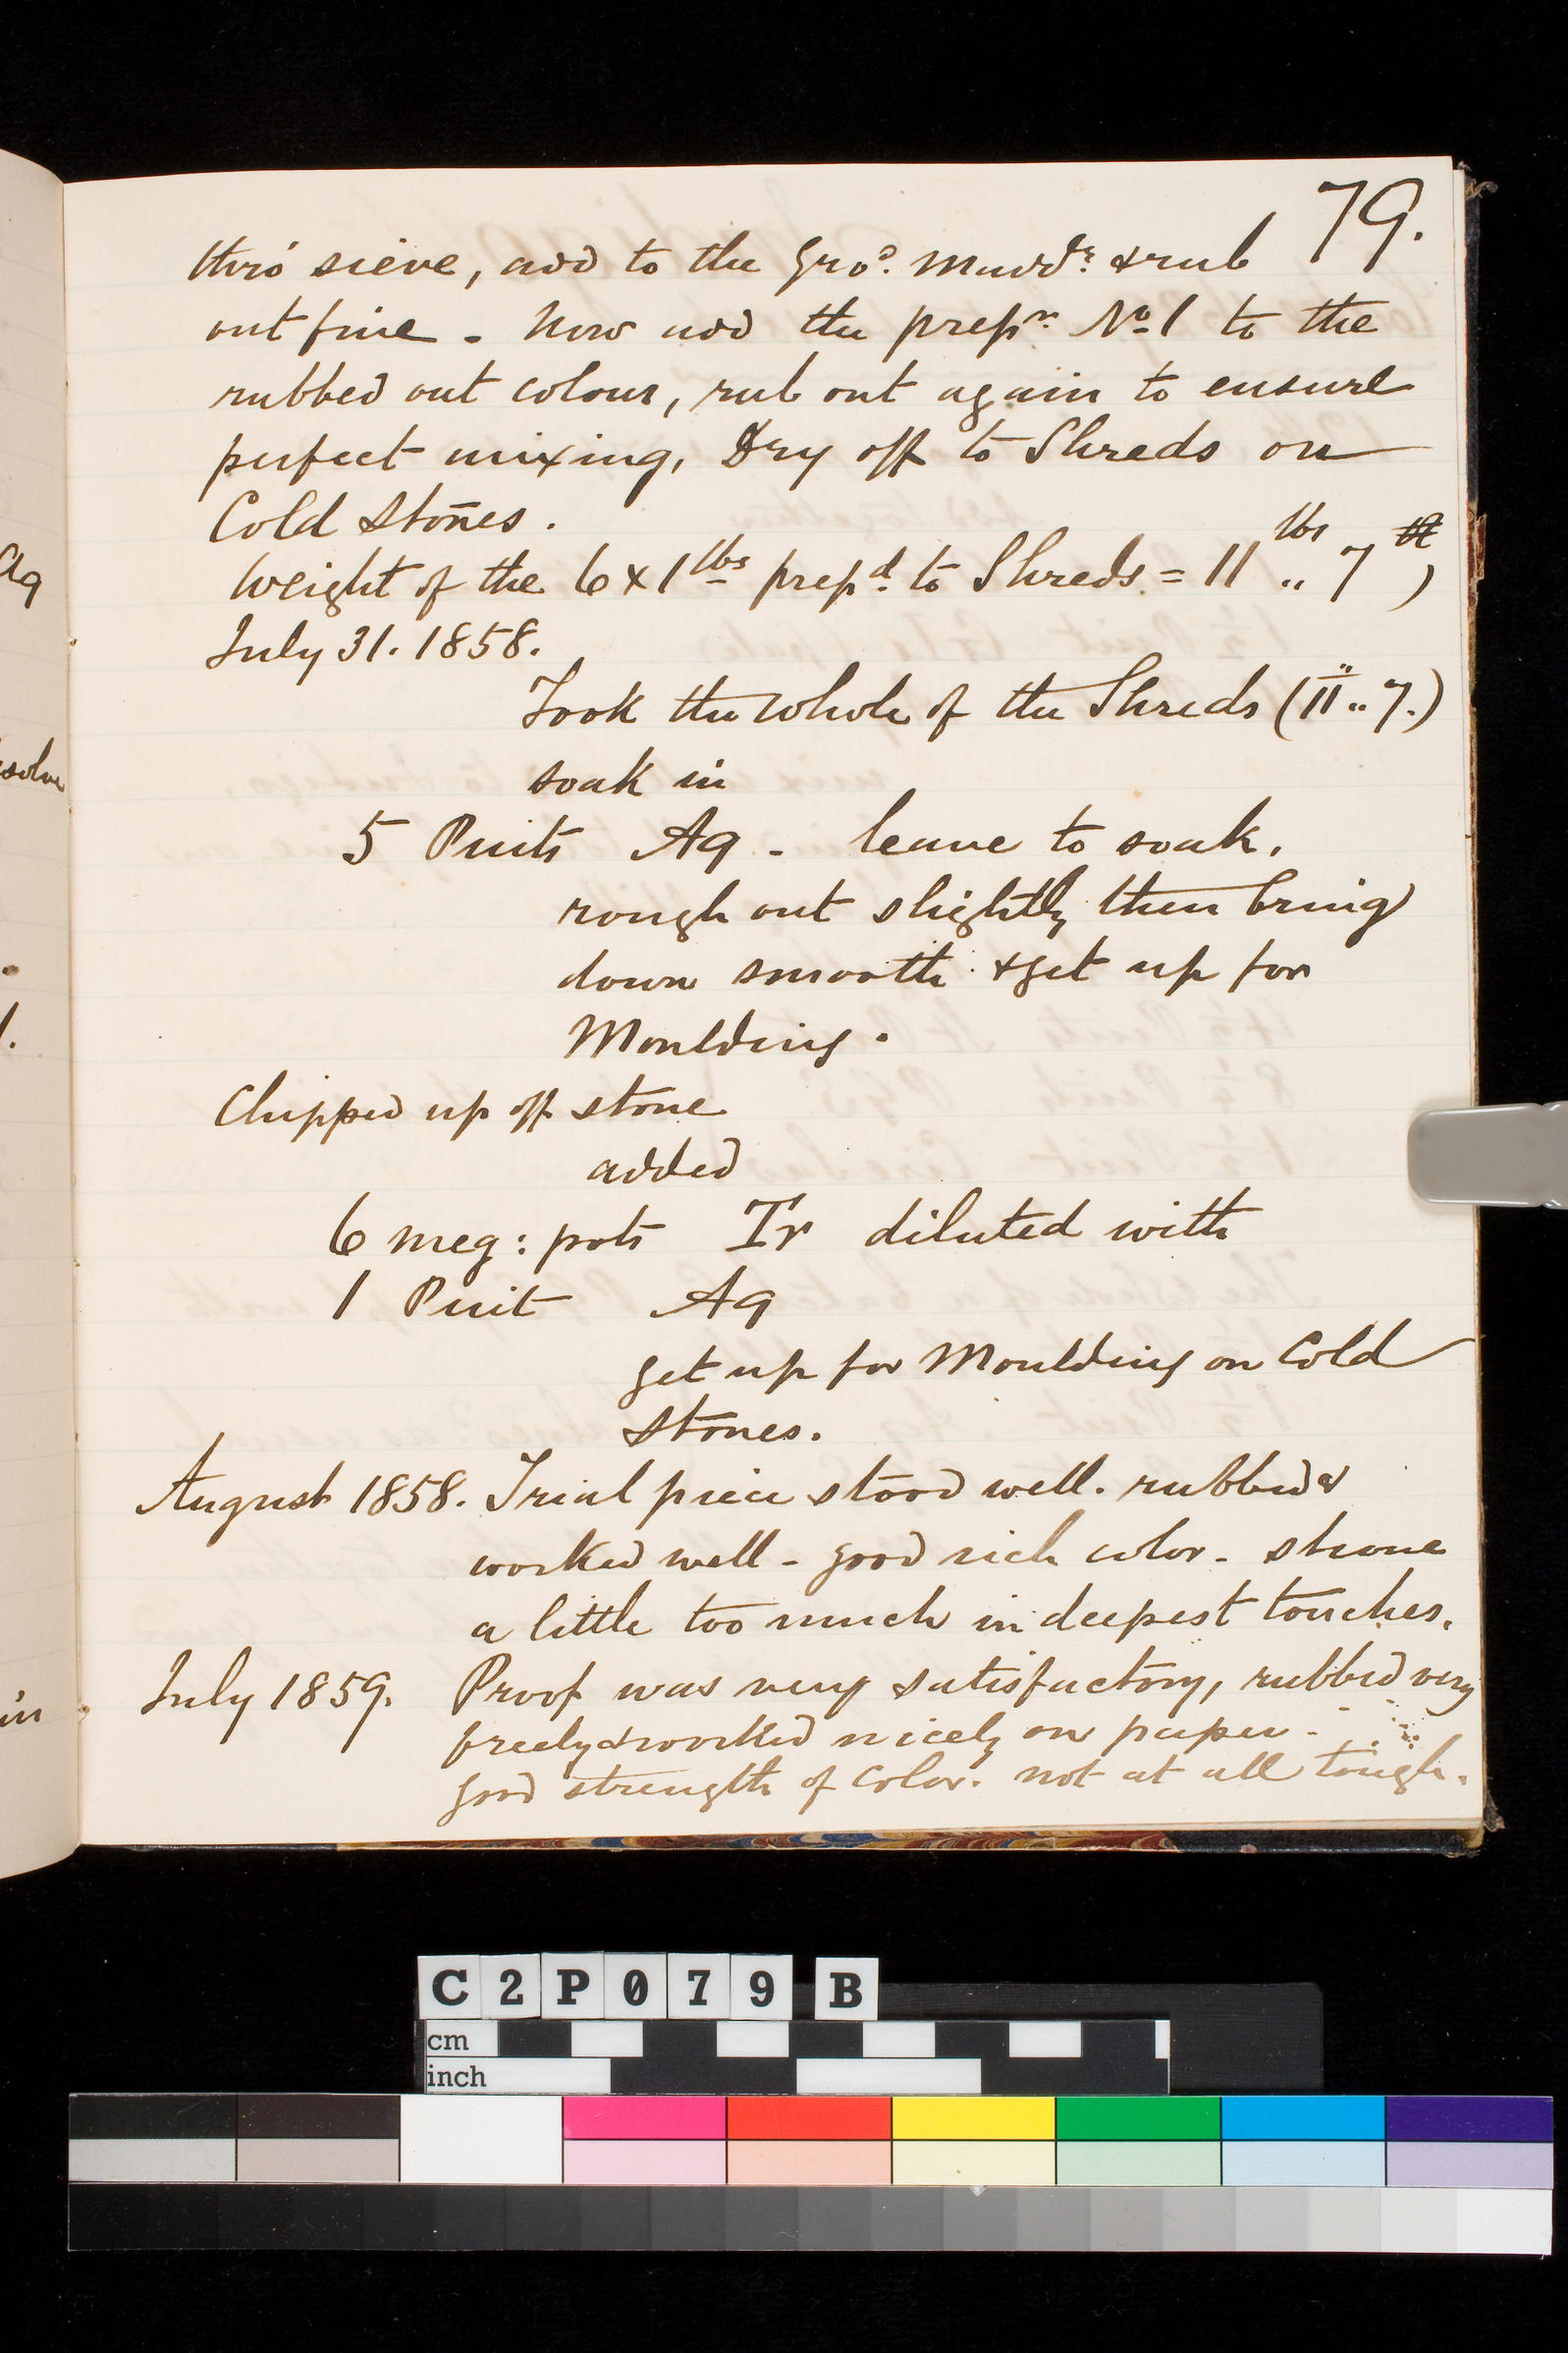 79.
thro' sieve, add to the Gro^d. Madd^r. & rub
out fine - Now add the prep^n. No. 1 to the
rubbed out colour, rub out again to ensure
perfect mixing, Dry off to Shreds on
Cold Stones.
Weight of the 6 x 1 lbs prep^d. to Shreds = 11 lbs .. 7
July 31. 1858.
Took the whole of the Shreds (11 .. 7.)
soak in
5 Pints Aq - leave to soak.
rough out slightly then bring
down smooth & get up for
Moulding.
Chipped up off stone
added
6 meg: pots Tr diluted with
1 Pint Aq
get up for Moulding on Cold
Stones.
August 1858. Trial piece stood well. rubbed &
worked well - good rich color - shone
a little too much in deepest touches.
July 1859. Proof was very satisfactory, rubbed very
freely & worked nicely on paper -
good strength of color. not at all tough.
Aq
solve
1.
in
C2P079 B
cm
inch